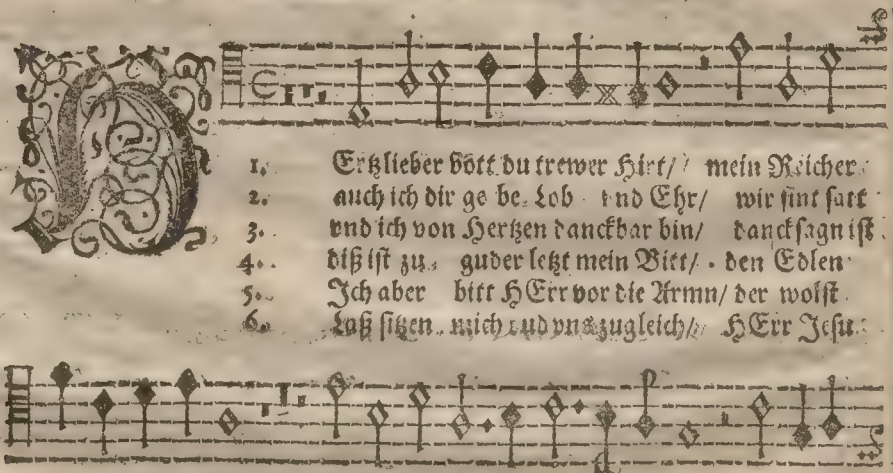 H
1. Ertzlieber Gott du trewer Hirt/ mein Reicher
2. auch ich dir ge be. Lob vnd Ehr/ wir sint satt
3. vnd ich von Hertzen danckbar bin/ dancksagn ist
4. diß ist zu guder letzt mein Bitt/ den Edlen
5. Ich aber bitt HErr vor die Armn/ der wolst
6. Laß sitzen mich vnd vns zugleich/ HErr Jesu